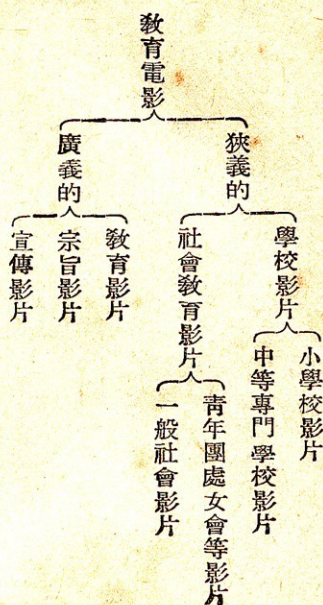 教育電影
狹義的
學校影片
小學校影片
中等專門學校影片
社會教育影片
青年團處女會等影片
一般社會影片
廣義的
教育影片
宗旨影片
宣傳影片